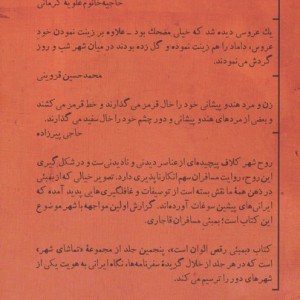 حاجیه‌خانوم علویه کرمانی
یک عروسی دیده شد که خیلی مضحک بود ـ علاوه بر زینت نمودن خود
عروس، داماد را هم زینت نموده و گل زده بودند در میان شهر شب و روز
گردش می‌نمودند.
محمدحسین قزوینی
زن و مرد هندو پیشانی خود را خال قرمز می‌گذارند و خط قرمز می‌کشند
و بعضی از مردهای هندو پیشانی و دور چشم خود را خال سفید می‌گذارند.
حاجی پیرزاده
روح شهر کلاف پیچیده‌ای از عناصر دیدنی و نادیدنی ست و در شکل‌گیری
این روح، روایت مسافران سهم انکارناپذیری دارد. تصویر خیالی که از بمبئی
در ذهن همهٔ ما نقش بسته است از توصیفات و غافلگیری‌هایی پدید آمده که
ایرانی‌های پیشین سوغات آورده‌اند. گزارش اولین مواجهه با شهر موضوع
این کتاب است؛ بمبئی مسافران قاجاری.
کتاب «بمبئی رقص الوان است»، پنجمین جلد از مجموعهٔ «تماشای شهر»
است که در هر جلد از خلال گزیدهٔ سفرنامه‌ها، نگاه ایرانی به هویت یکی از
شهرهای دور را ترسیم می‌کند.